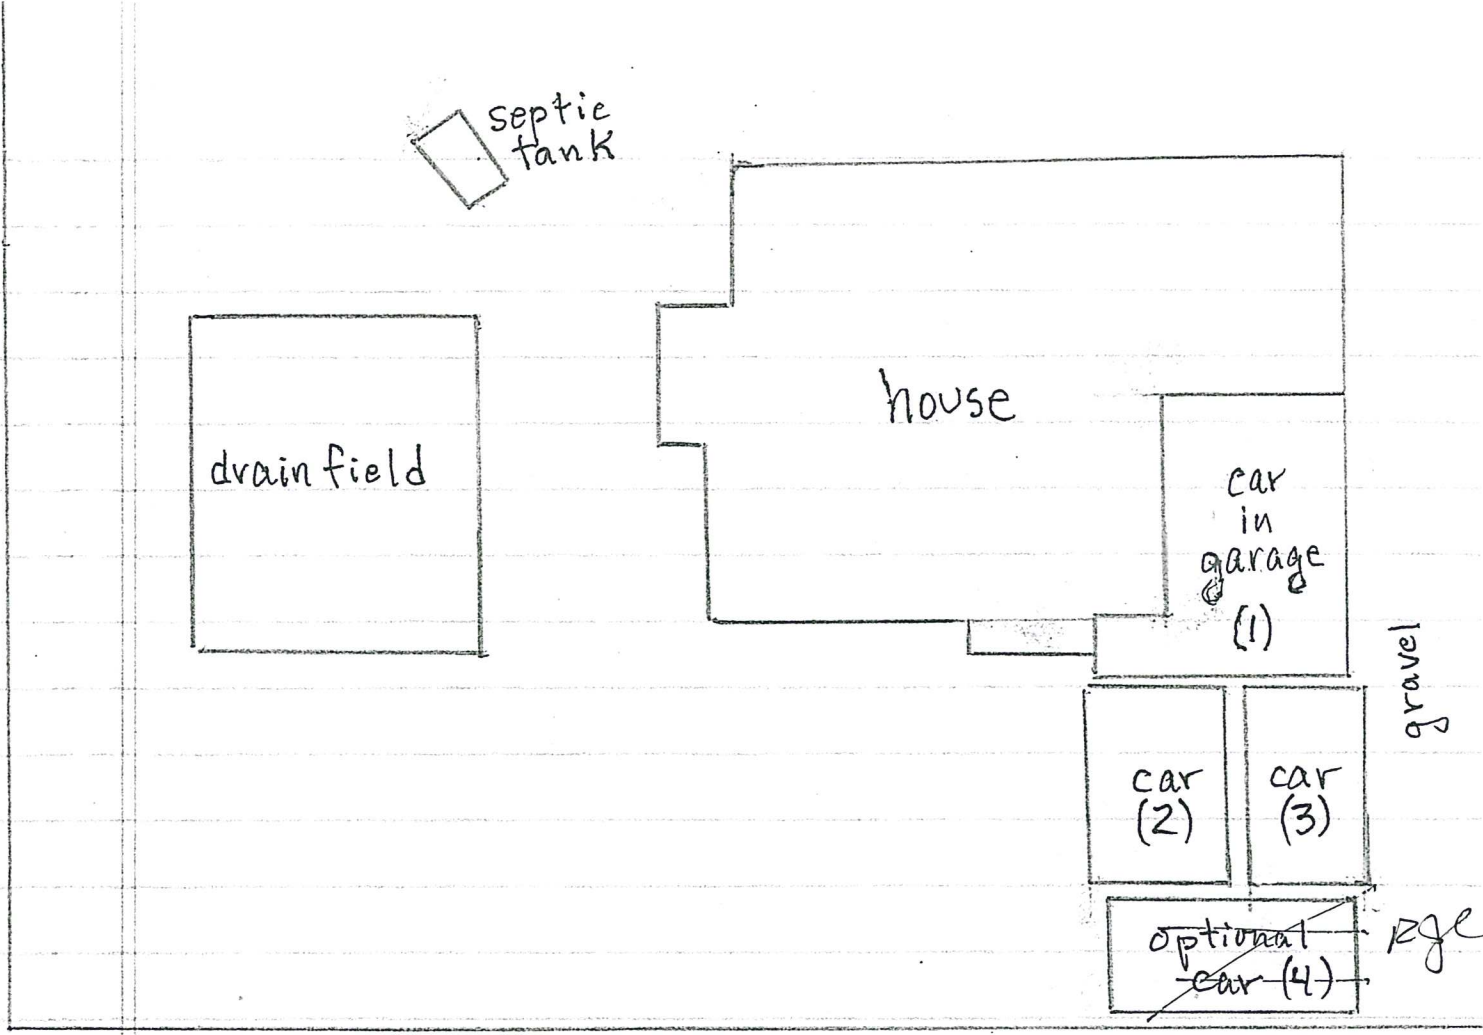 septic
tank
house
drainfield
car
in
garage
(1)
gravel
car
(2)
car
(3)
optional
car (4)